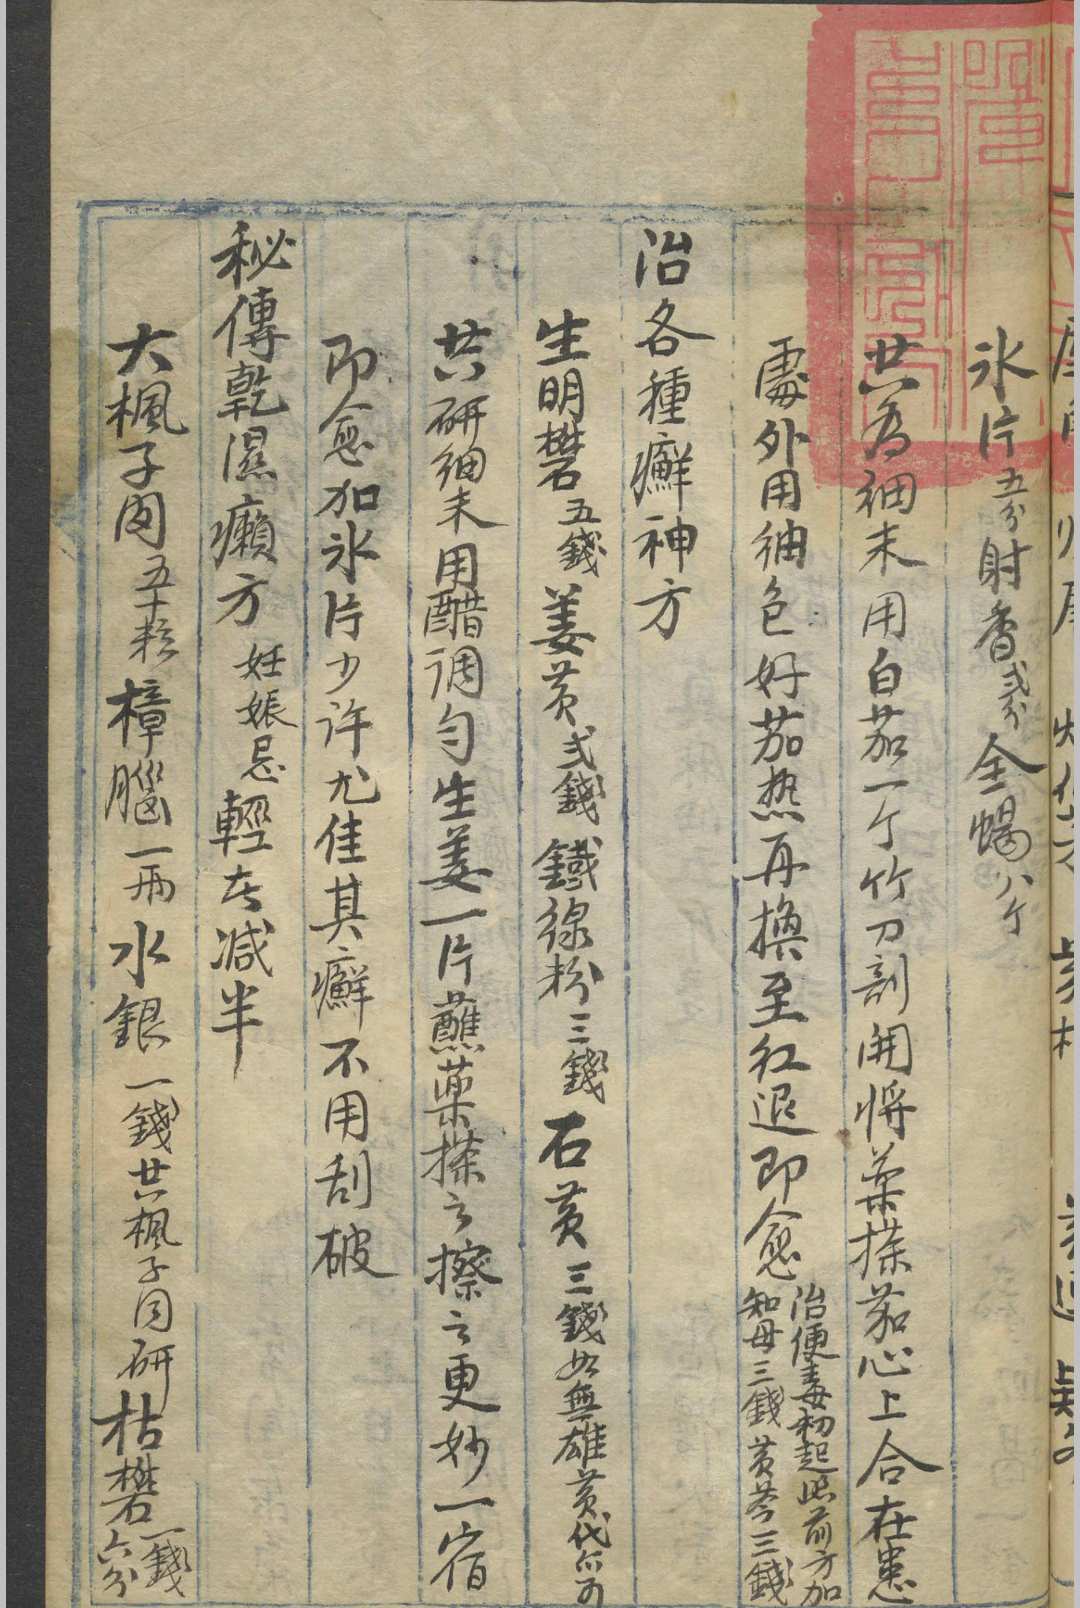 氷片五分射香弍分全蝎八个
共为細末用白茄一个竹刀剖開将藥搽茄心上合在患
處外用紬包好茄热再換至红退即愈治便毒初起照前方加知母三錢黄芩三錢
治各種癬神方
生明礬五錢姜黄弍錢鐵線粉三錢石黄三錢如無雄黄代亦可
共研細末用醋调勻生姜一片蘸藥搽之擦之更妙一宿
即愈加氷片少许尤佳其癬不用刮破
秘傳乾濕癩方妊娠忌輕者减半
大楓子肉五十粒樟腦一両水銀一錢共楓子肉研枯礬一錢六分